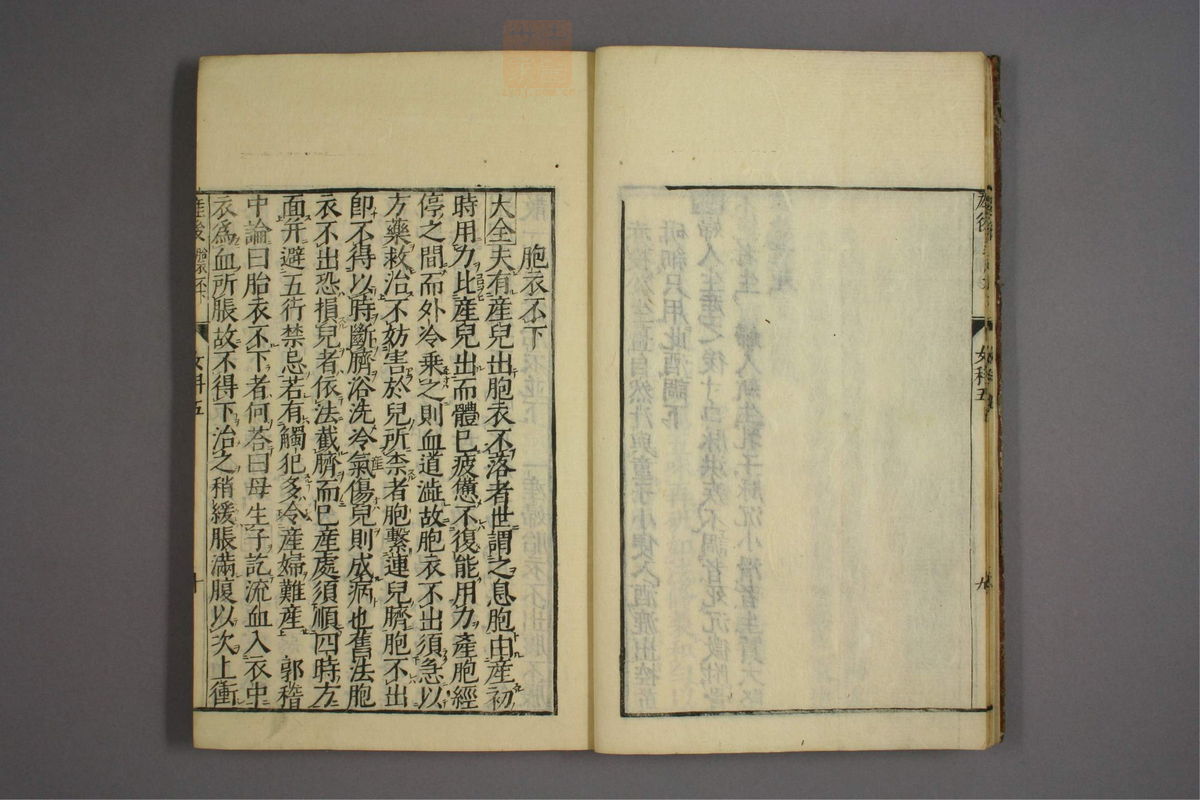 產後
女科五
九
胞衣不下
大全夫有產兒出胞衣不落者世謂之息胞由產初
時用力比產兒出而體已疲憊不復能用力產胞經
停之間而外冷乘之則血道澁故胞衣不出須急以
方藥救治不妨害於兒所柰者胞繫連兒臍胞不出
即不得以時斷臍浴洗冷氣傷兒則成病也舊法胞
衣不出恐損兒者依法截臍而已產處須順四時方
面并避五行禁忌若有觸犯多令產婦難產 郭稽
中論曰胎衣不下者何荅曰母生子訖流血入衣中
衣爲血所脹故不得下治之稍緩脹滿腹以次上衝
產後 胎衣不下
女科五
十